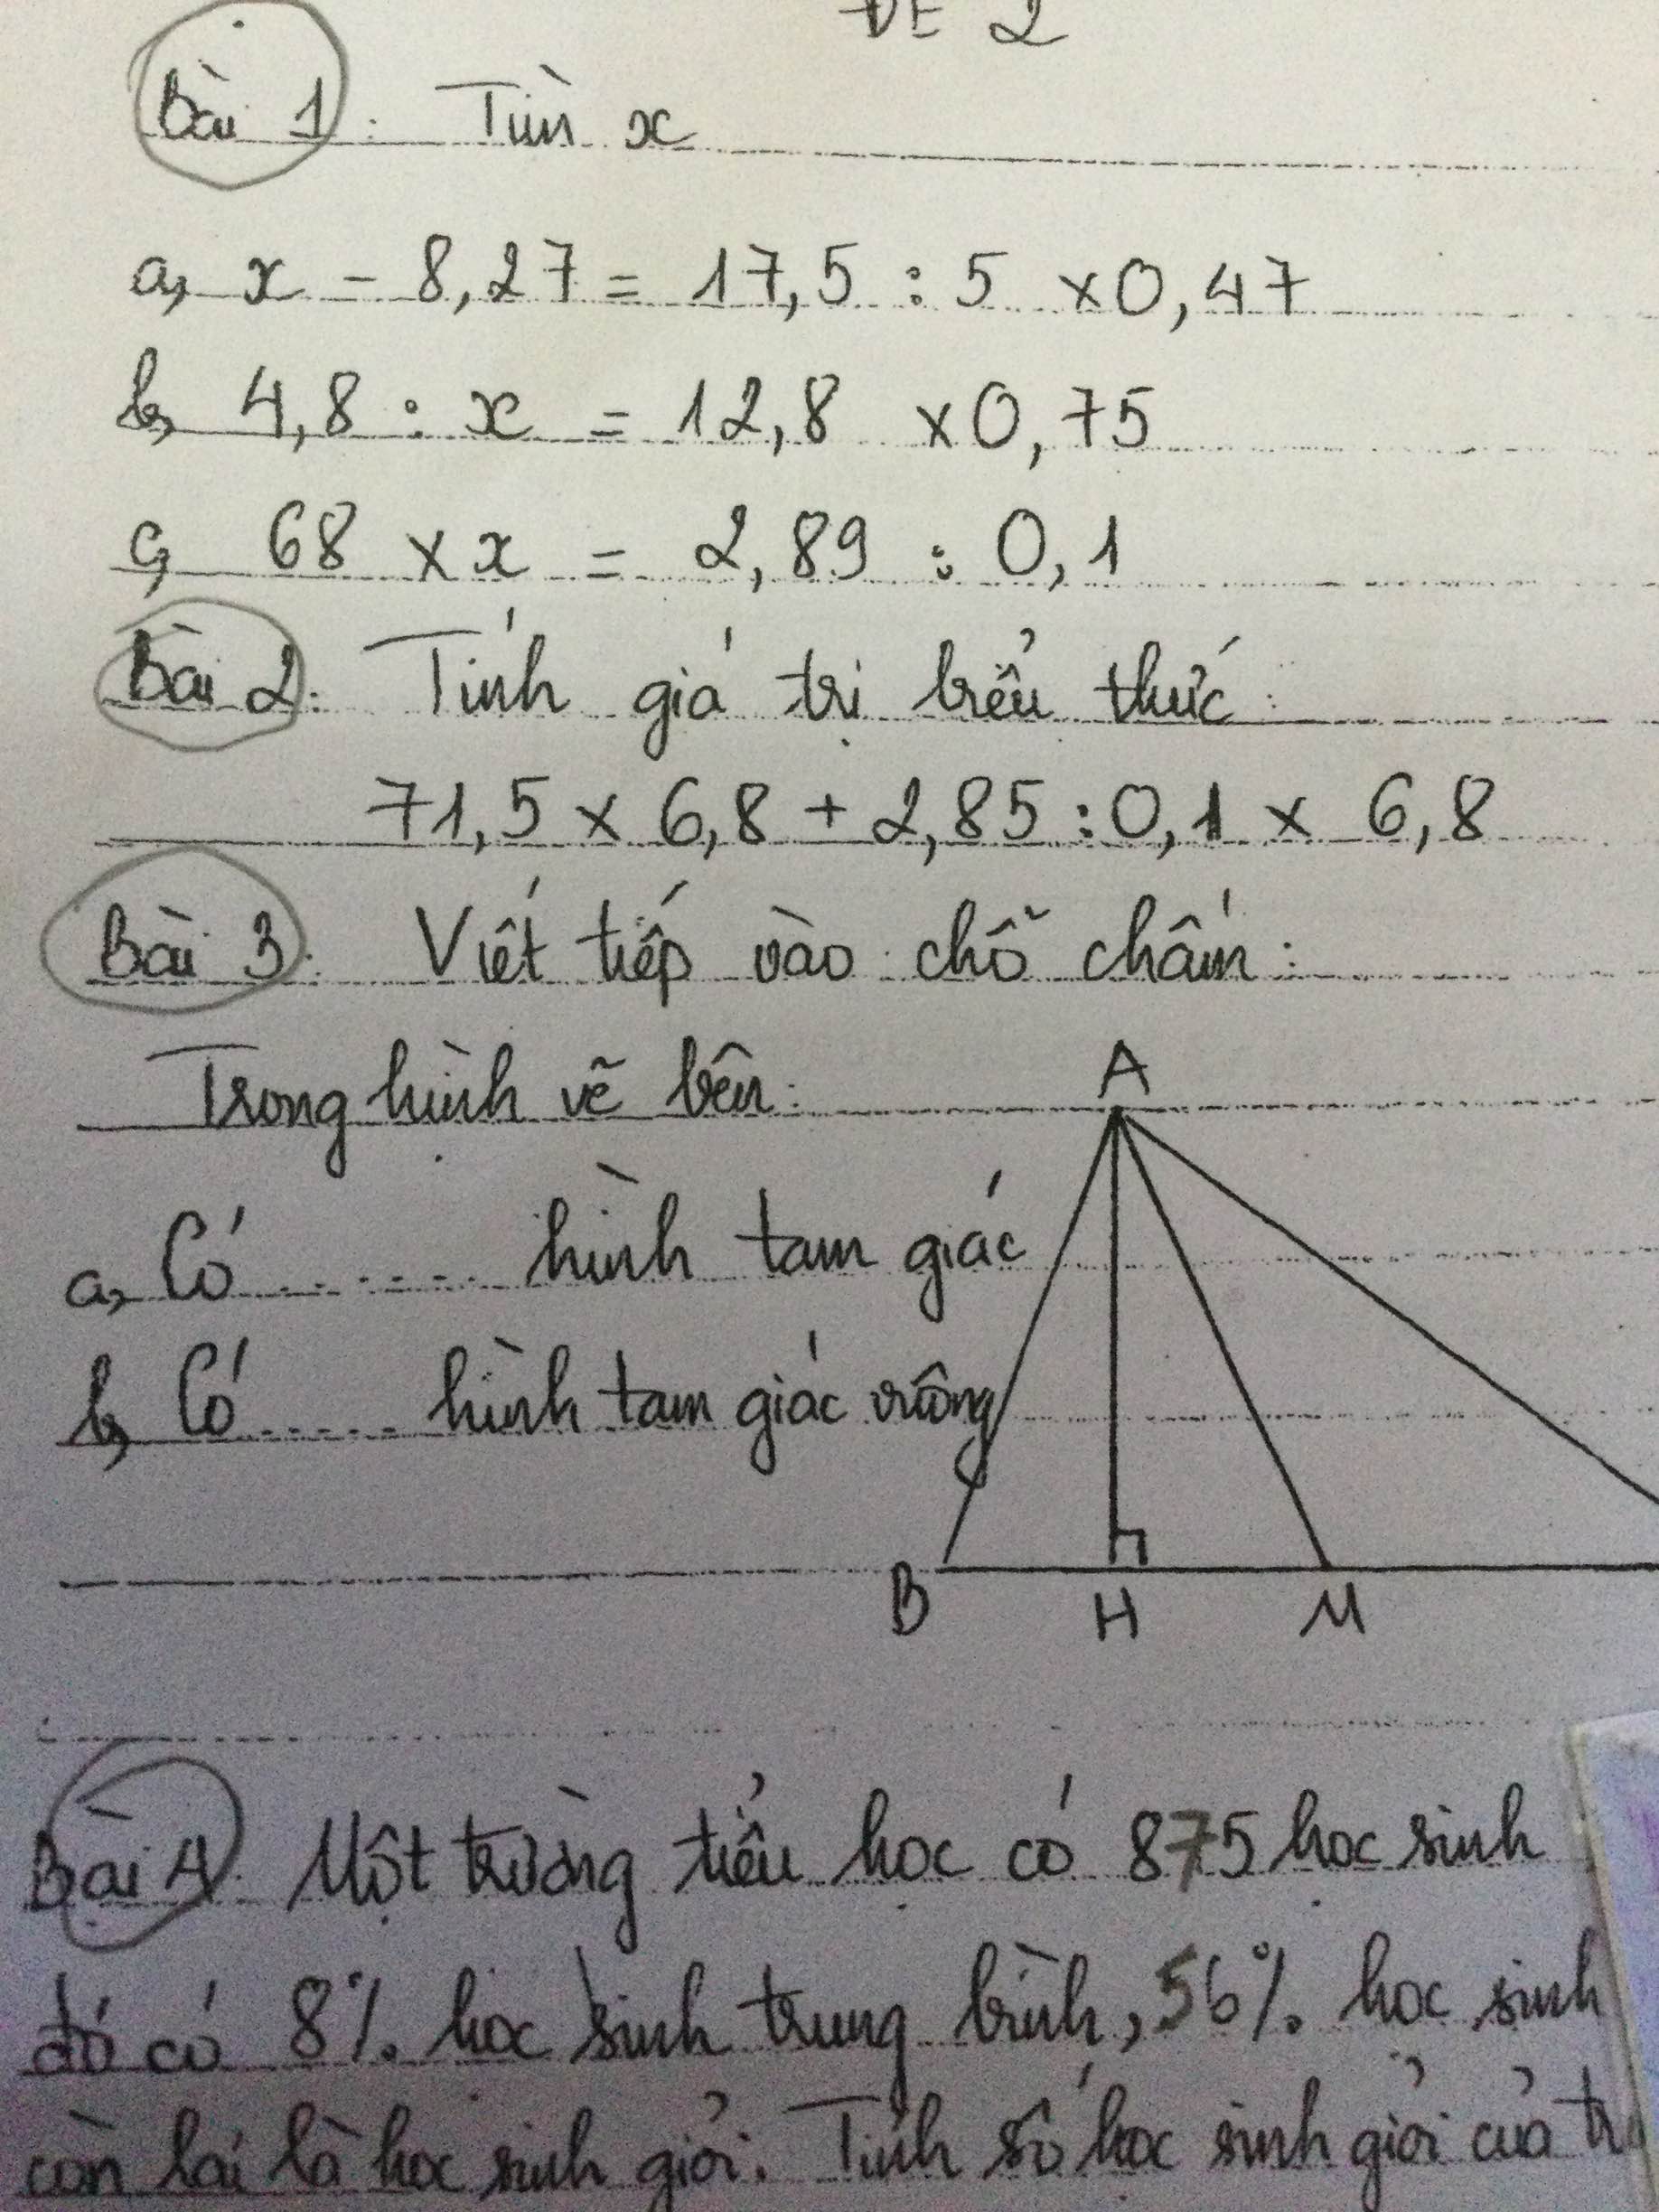 ĐỀ 2
Bài 1: Tìm x
a, x - 8,27 = 17,5 : 5 x 0,47
b, 4,8 : x = 12,8 x 0,75
c, 68 x x = 2,89 : 0,1
Bài 2: Tính giá trị biểu thức:
71,5 x 6,8 + 2,85 : 0,1 x 6,8
Bài 3: Viết tiếp vào chỗ chấm:
Trong hình vẽ bên:
A
a, Có ....... hình tam giác
b, Có ..... hình tam giác vuông
B H M
Bài 4: Một trường tiểu học có 875 học sinh
đó có 8% học sinh trung bình, 56% học sinh
còn lại là học sinh giỏi. Tính số học sinh giỏi của